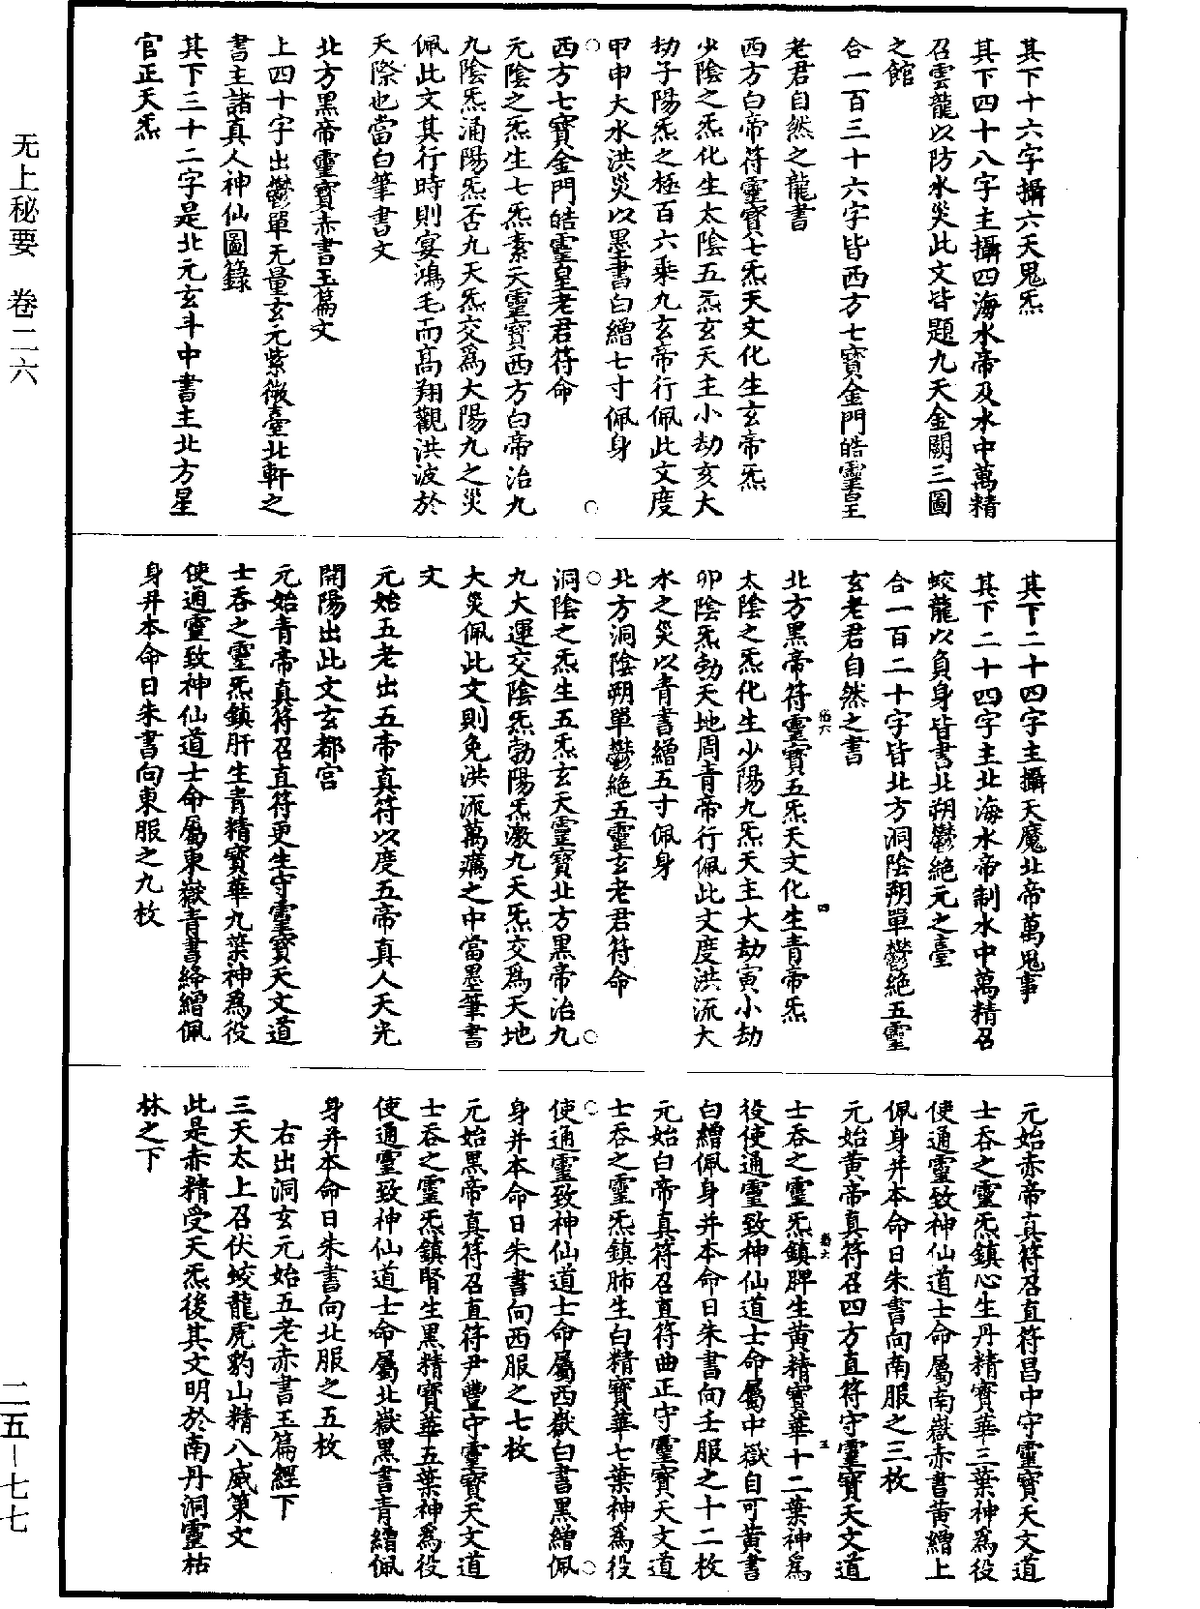 无上秘要　卷二六
其下十六字攝六天鬼炁
其下四十八字主攝四海水帝及水中萬精
召雲龍以防水災此文皆題九天金闕三圖
之館
合一百三十六字皆西方七寶金門皓靈皇
老君自然之龍書
西方白帝符靈寶七炁天文化生玄帝炁
少陰之炁化生太陰五炁玄天主小劫亥大
劫子陽炁之極百六乘九玄帝行佩此文度
甲申大水洪災以墨書白繒七寸佩身
西方七寶金門皓靈皇老君符命
元陰之炁生七炁素天靈寶西方白帝治九
九陰炁涌陽炁否九天炁交爲大陽九之災
佩此文其行時則宴鴻毛而高翔觀洪波於
天際也當白筆書文
北方黑帝靈寶赤書玉篇文
上四十字出鬱單无量玄元紫微臺北軒之
書主諸真人神仙圖籙
其下三十二字是北元玄斗中書主北方星
官正天炁
其下二十四字主攝天魔北帝萬鬼事
其下二十四字主北海水帝制水中萬精召
蛟龍以負身皆書北朔鬱絶元之臺
合一百二十字皆北方洞陰朔單鬱絶五靈
玄老君自然之書
北方黑帝符靈寶五炁天文化生青帝炁
太陰之炁化生少陽九炁天主大劫寅小劫
卯陰炁勃天地周青帝行佩此文度洪流大
水之災以青書繒五寸佩身
北方洞陰朔單鬱絶五靈玄老君符命
洞陰之炁生五炁玄天靈寶北方黑帝治九
九大運交陰炁勃陽炁激九天炁交爲天地
大災佩此文則免洪流萬癘之中當墨筆書
文
元始五老出五帝真符以度五帝真人天光
開陽出此文玄都宮
元始青帝真符召直符更生守靈寶天文道
士吞之靈炁鎮肝生青精寶華九葉神爲役
使通靈致神仙道士命屬東嶽青書絳繒佩
身并本命日朱書向東服之九枚
元始赤帝真符召直符昌中守靈寶天文道
士吞之靈炁鎮心生丹精寶華三葉神爲役
使通靈致神仙道士命屬南嶽赤書黃繒上
佩身并本命日朱書向南服之三枚
元始黃帝真符召四方直符守靈寶天文道
士吞之靈炁鎮脾生黃精寶華十二葉神爲
役使通靈致神仙道士命屬中嶽自可黃書
白繒佩身并本命日朱書向王服之十二枚
元始白帝真符召直符曲正守靈寶天文道
士吞之靈炁鎮肺生白精寶華七葉神爲役
使通靈致神仙道士命屬西嶽白書黑繒佩
身并本命日朱書向西服之七枚
元始黑帝真符召直符尹豐守靈寶天文道
士吞之靈炁鎮腎生黑精寶華五葉神爲役
使通靈致神仙道士命屬北嶽黑書青繒佩
身并本命日朱書向北服之五枚
右出洞玄元始五老赤書玉篇經下
三天太上召伏蛟龍虎豹山精八威策文
此是赤精受天炁後其文明於南丹洞靈枯
林之下
二五—七七